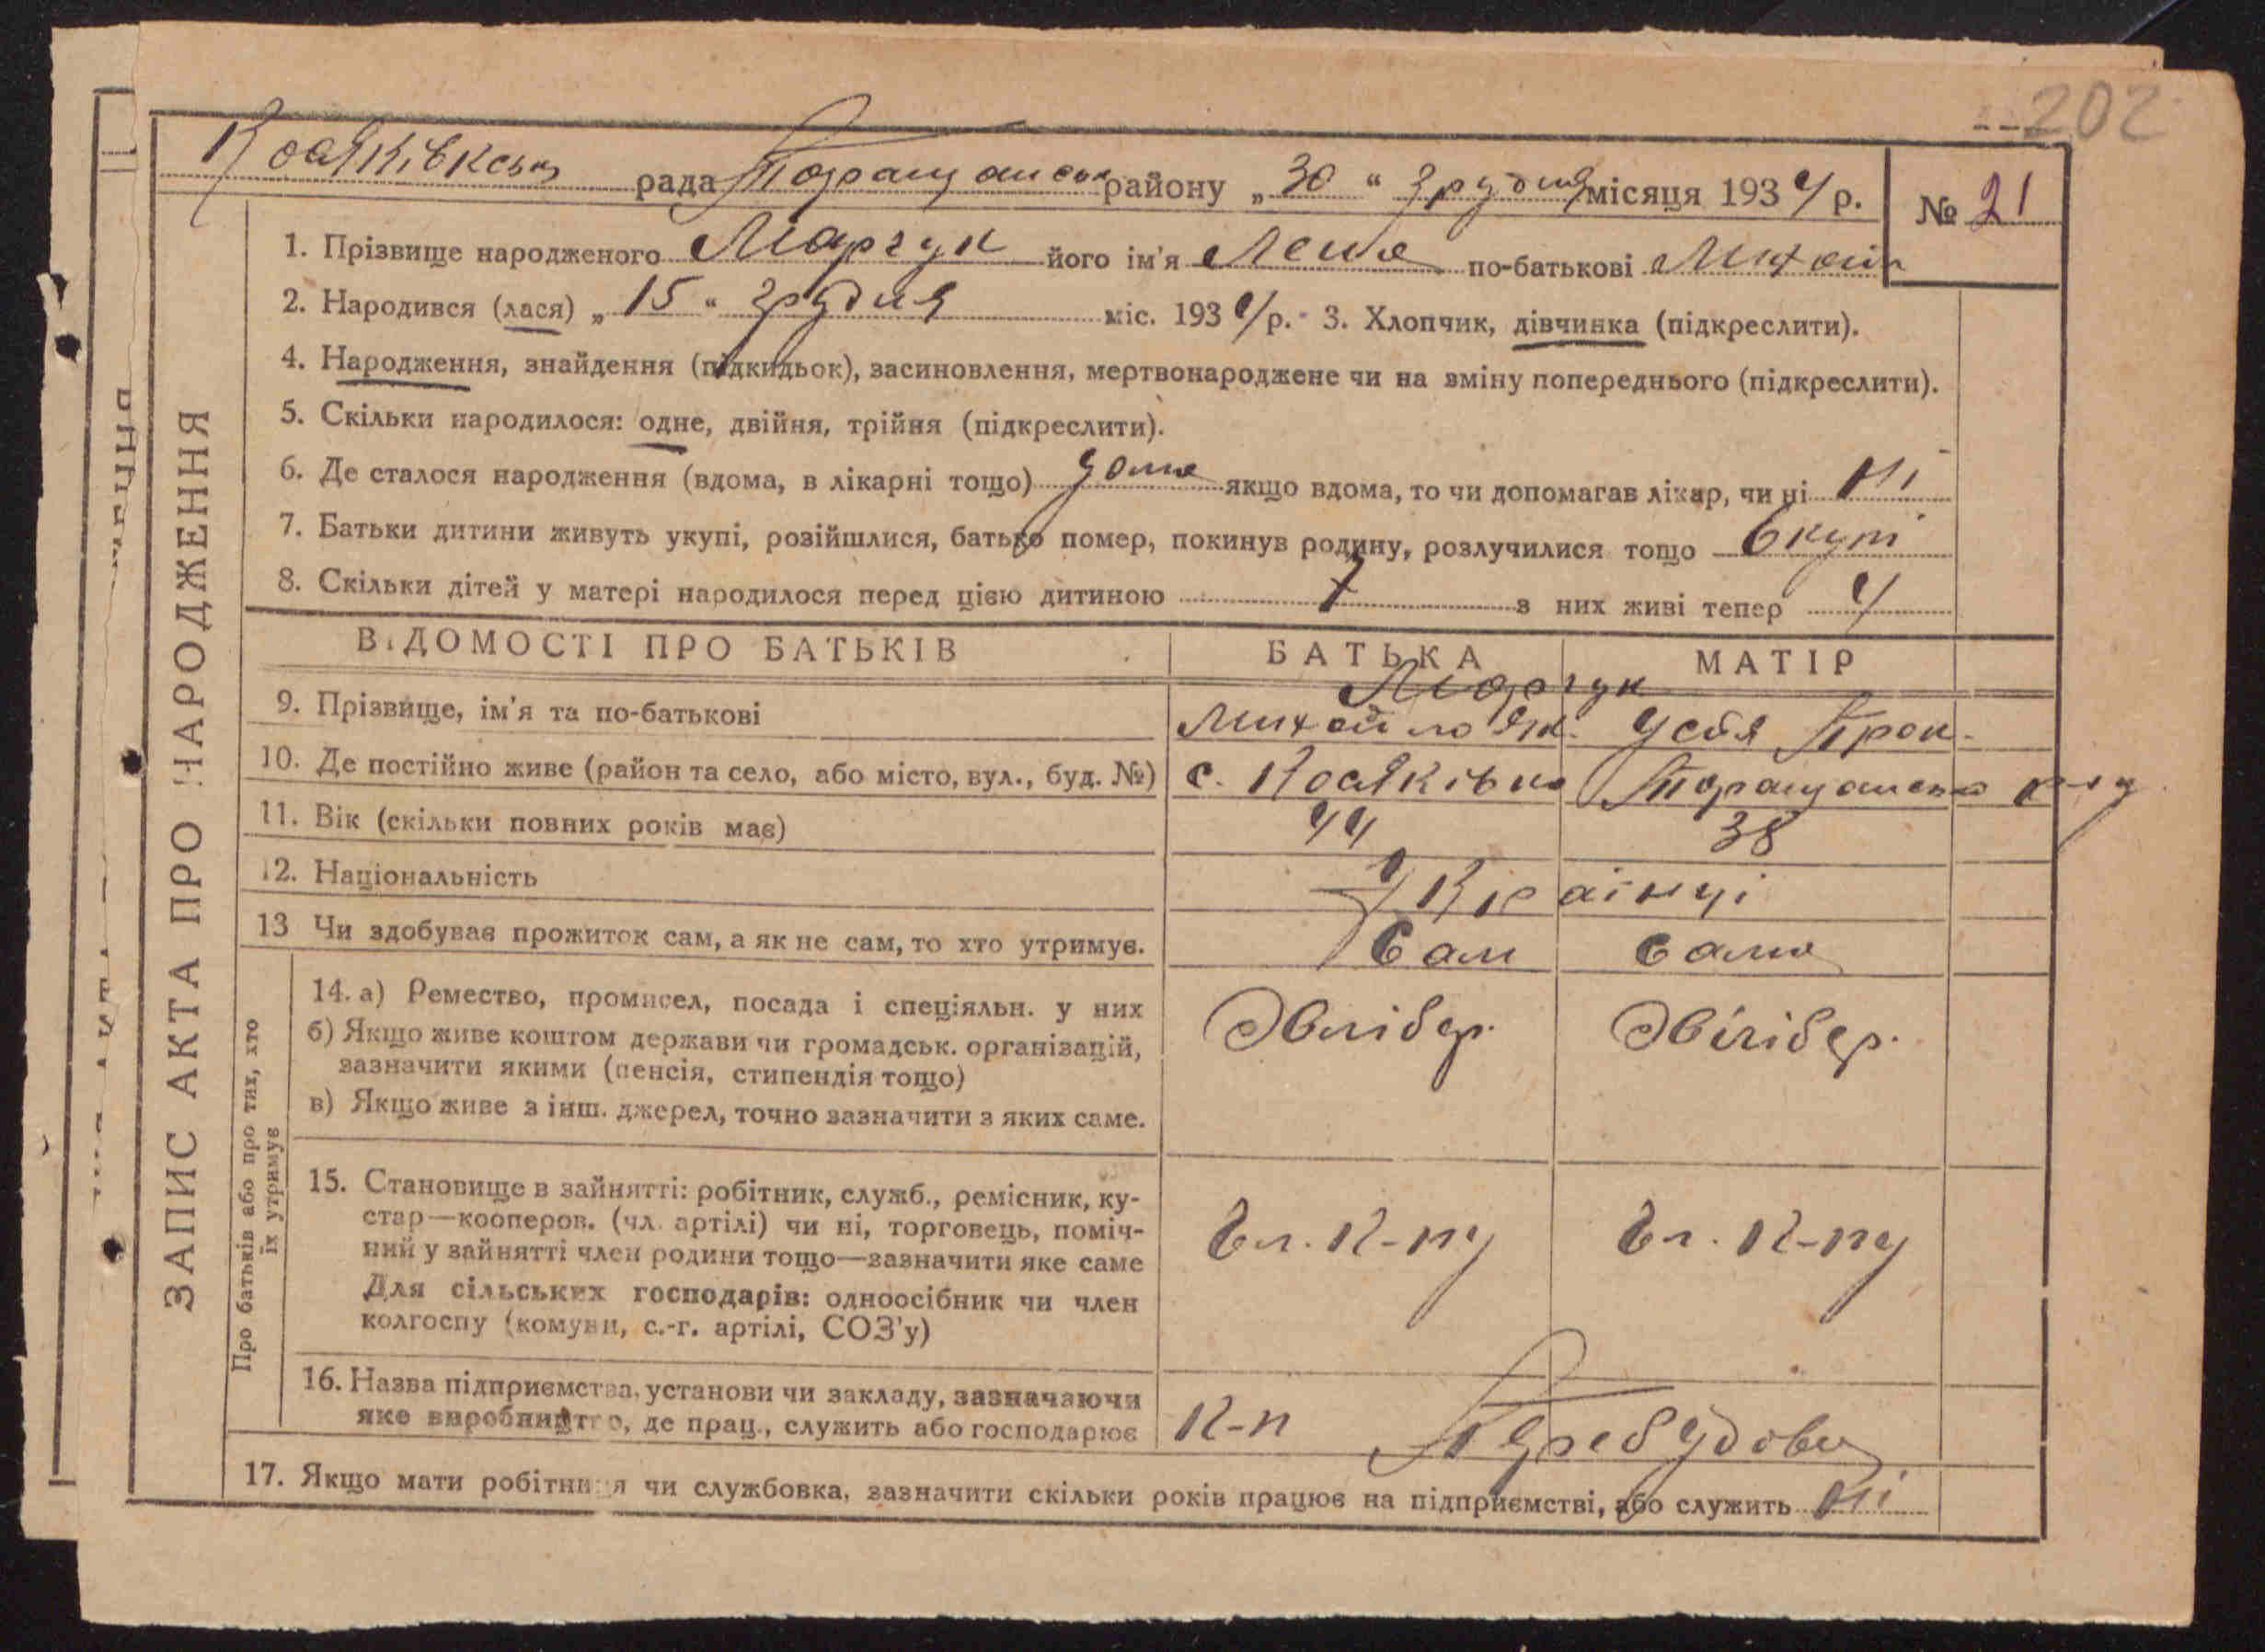 202
Косяківськ рада Таращанськ району „30“ грудня місяця 1934 р. № 21
1. Прізвище народженого Марчук його ім'я Лена по-батькові Михайл
2. Народився (лася) „15“ грудня міс. 1934 р. 3. Хлопчик, дівчинка (підкреслити).
4. Народження, знайдення (підкидьок), засиновлення, мертвонароджене чи на зміну попереднього (підкреслити).
5. Скільки народилося: одне, двійня, трійня (підкреслити).
6. Де сталося народження (вдома, в лікарні тощо) дома якщо вдома, то чи допомагав лікар, чи ні ні
7. Батьки дитини живуть укупі, розійшлися, батько помер, покинув родину, розлучилися тощо вкупі
8. Скільки дітей у матері народилося перед цією дитиною 7 з них живі тепер 4
ЗАПИС АКТА ПРО НАРОДЖЕННЯ
ВІДОМОСТІ ПРО БАТЬКІВ БАТЬКА МАТІР
Марчук
9. Прізвище, ім'я та по-батькові Михайло Як. Устя Прок.
10. Де постійно живе (район та село, або місто, вул., буд. №) с. Косяківка Таращанськ р-ну
11. Вік (скільки повних років має) 44 38
12. Національність Українці
13 Чи здобуває прожиток сам, а як не сам, то хто утримує. Сам сама
Про батьків або про тих, хто їх утримує
14. а) Ремество, промисел, посада і спеціяльн. у них Хлібор. Хлібор.
б) Якщо живе коштом держави чи громадськ. організацій,
зазначити якими (пенсія, стипендія тощо)
в) Якщо живе з інш. джерел, точно зазначити з яких саме.
15. Становище в зайнятті: робітник, служб., ремісник, ку-
стар—кооперов. (чл. артілі) чи ні, торговець, поміч-
ний у зайнятті член родини тощо—зазначити яке саме
Для сільських господарів: одноосібник чи член
колгоспу (комуни, с.-г. артілі, СОЗ'у)
чл. к-пу чл. к-пу
16. Назва підприємства, установи чи закладу, зазначаючи
яке виробництво, де прац., служить або господарює К-п Перебудова
17. Якщо мати робітниця чи службовка, зазначити скільки років працює на підприємстві, або служить ні